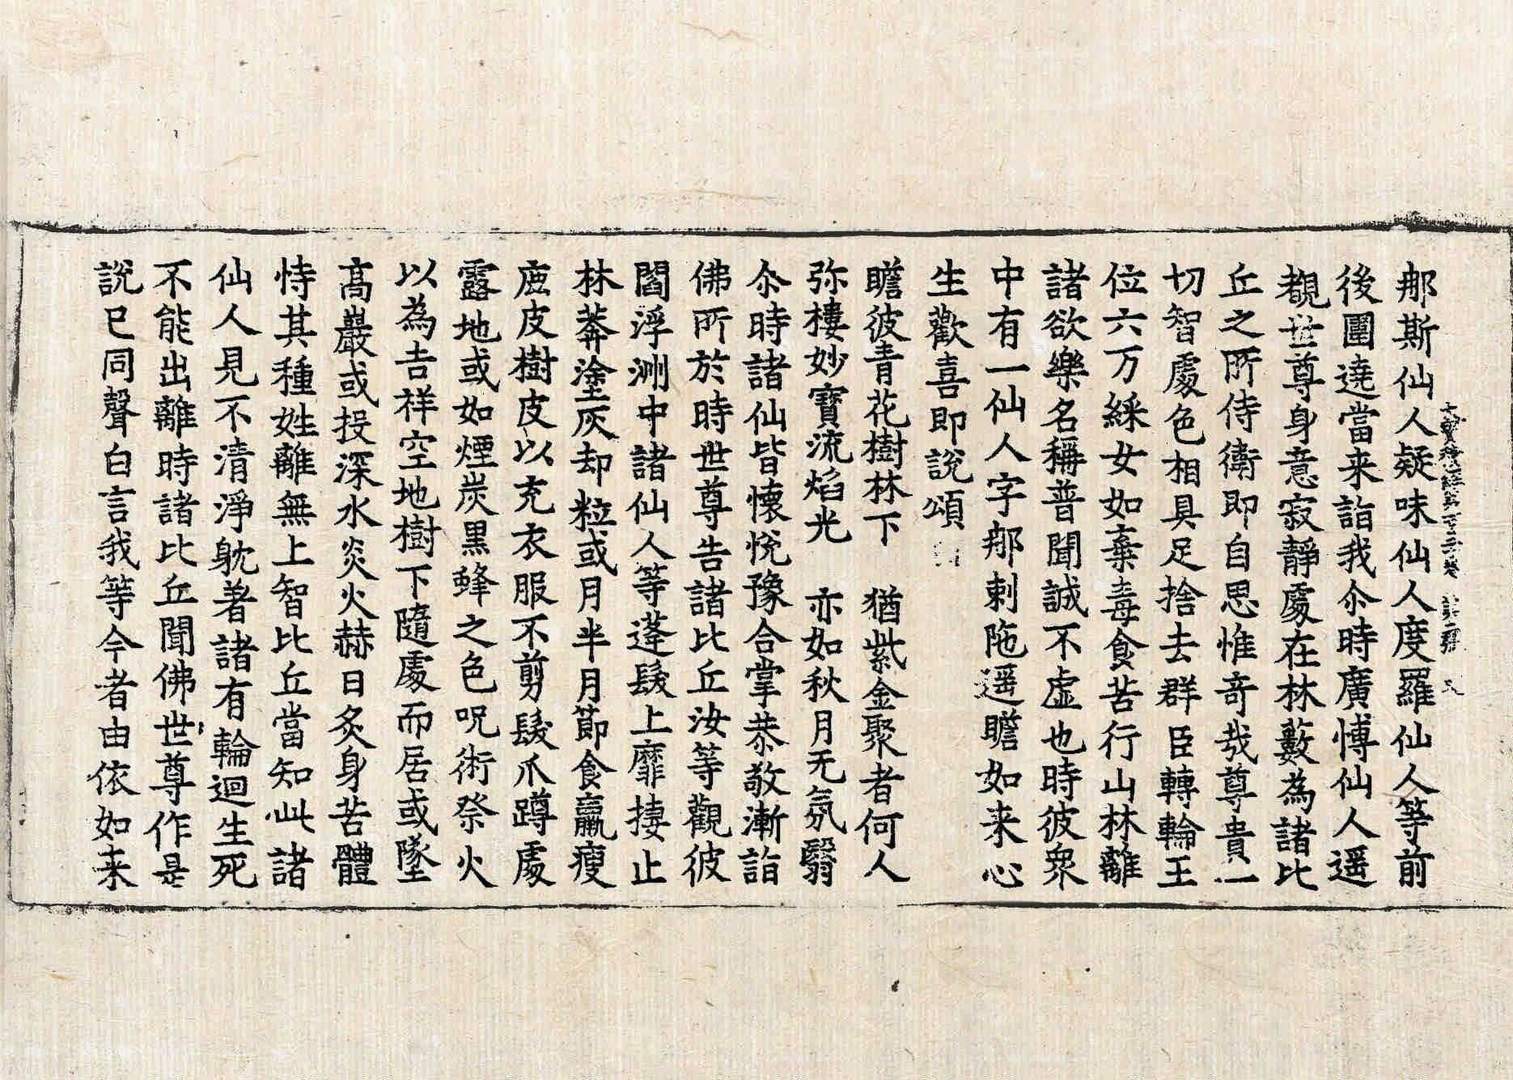 大寶積經第一百二十卷 第二張 乃
那斯仙人疑味仙人度羅仙人等前
後圍遶當来詣我尒時廣愽仙人遥
覩世尊身意寂靜處在林藪為諸比
丘之所侍衛即自思惟竒㢤尊貴一
切智處色相具足捨去群臣轉輪王
位六万婇女如棄毒食苦行山林離
諸欲樂名稱普聞誠不虚也時彼衆
中有一仙人字那剌陁遥瞻如来心
生歡喜即說頌
瞻彼青花樹林下 猶紫金聚者何人
弥樓妙寶流焰光 亦如秋月无氛翳
尒時諸仙皆懷悅豫合掌恭敬漸詣
佛所於時世尊告諸比丘汝等觀彼
閻浮洲中諸仙人等蓬髮上靡捿止
林莽塗灰却粒或月半月節食羸瘦
鹿皮樹皮以充衣服不剪髮爪蹲處
露地或如煙炭黒蜂之色呪術祭火
以為吉祥空地樹下隨處而居或墜
髙巖或投深水炎火赫日炙身苦體
恃其種姓離無上智比丘當知此諸
仙人見不清淨躭著諸有輪迴生死
不能出離時諸比丘聞佛世尊作是
說已同聲白言我等今者由依如来